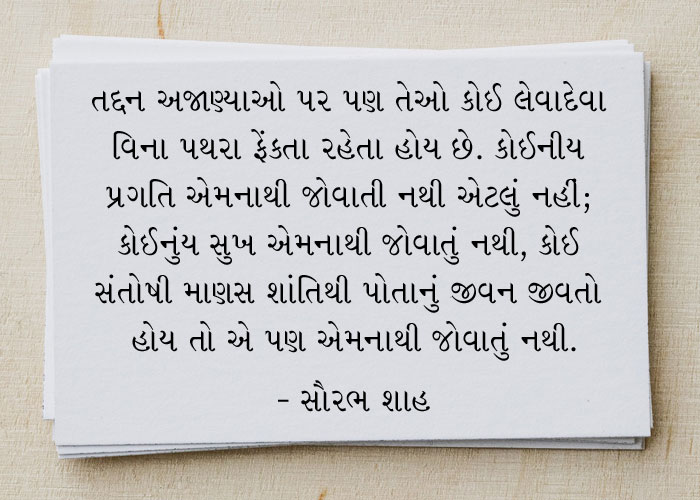 તદ્દન અજાણ્યાઓ પર પણ તેઓ કોઈ લેવાદેવા
વિના પથરા ફેંકતા રહેતા હોય છે. કોઈનીય
પ્રગતિ એમનાથી જોવાતી નથી એટલું નહીં;
કોઈનુંય સુખ એમનાથી જોવાતું નથી, કોઈ
સંતોષી માણસ શાંતિથી પોતાનું જીવન જીવતો
હોય તો એ પણ એમનાથી જોવાતું નથી.
- સૌરભ શાહ